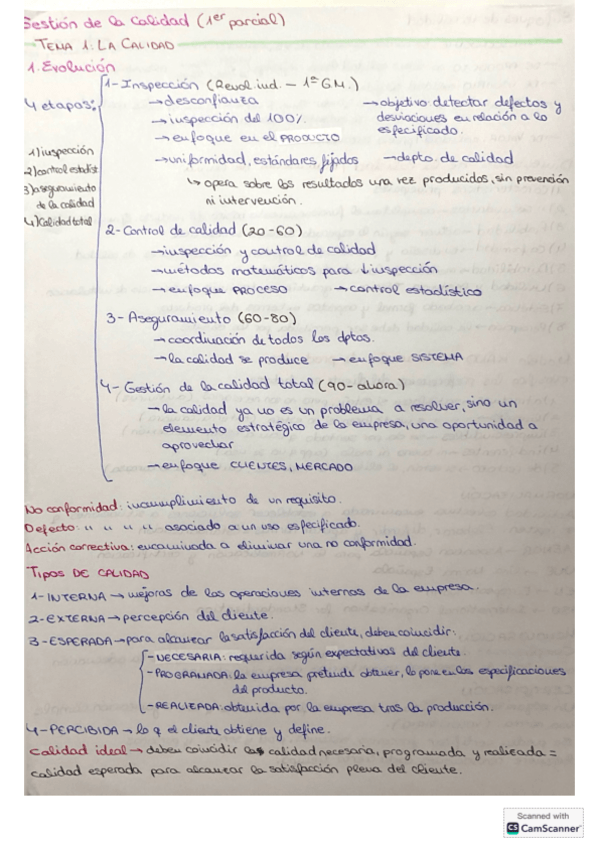 Gestión de la calidad (1er parcial)
TEMA 1: LA CALIDAD
1. Evolución
4 etapas:
1) inspección
2) control estadíst
3) aseguramiento
de la calidad
4) Calidad total
1- Inspección (Revol. ind. - 1ª G.M.)
→ desconfianza
→ inspección del 100%
→ enfoque en el PRODUCTO
→ uniformidad, estándares fijados
→ objetivo: detectar defectos y
desviaciones en relación a lo
especificado.
→ depto. de calidad
↳ opera sobre los resultados una vez producidos, sin prevención
ni intervención.
2- Control de calidad (20-60)
→ inspección y control de calidad
→ métodos matemáticos para ↓ inspección
→ enfoque PROCESO → control estadístico
3- Aseguramiento (60-80)
→ coordinación de todos los dptos.
→ la calidad se produce → enfoque SISTEMA
4- Gestión de la calidad total (90-ahora)
→ la calidad ya no es un problema a resolver, sino un
elemento estratégico de la empresa, una oportunidad a
aprovechar
→ enfoque CLIENTES, MERCADO
No conformidad: incumplimiento de un requisito.
Defecto: " " " " asociado a un uso especificado.
Acción correctiva: encaminada a eliminar una no conformidad.
TIPOS DE CALIDAD
1- INTERNA → mejoras de las operaciones internas de la empresa.
2- EXTERNA → percepción del cliente.
3- ESPERADA → para alcanzar la satisfacción del cliente, deben coincidir:
- NECESARIA: requerida según expectativas del cliente.
- PROGRAMADA: la empresa pretende obtener, lo pone en las especificaciones
del producto.
- REALIZADA: obtenida por la empresa tras la producción.
4- PERCIBIDA → lo q el cliente obtiene y define.
Calidad ideal → deben coincidir las calidad necesaria, programada y realizada =
calidad esperada para alcanzar la satisfacción plena del cliente.
Scanned with
CS CamScanner